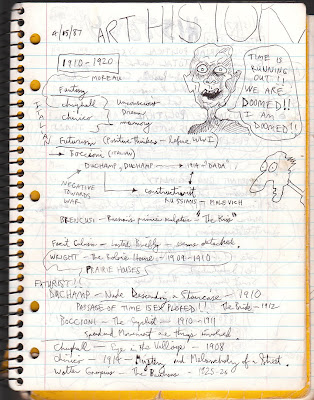 4/15/87
ART HISTORY
1910-1920
MOREAU
Fantasy
chagall
Unconscious
Dream
memory
chirico
TIME IS
RUNNING
OUT!!
WE ARE
DOOMED!!
I AM
DOOMED!!
Futurism (Positive Thinkers - Before WWI)
Boccioni
DUCHAMP, DUCHAMP 1914 - "DADA"
NEGATIVE
TOWARDS
WAR
Constructionist
RUSSIANS - MALEVICH
BRENCUSI - "The Kiss"
WRIGHT - The Robie House - 1909-1910
PRAIRIE HOUSES
FUTURIST!!
DUCHAMP - Nude Descending a Staircase - 1910
PASSAGE OF TIME IS EXPLORED!! The Bride - 1912
BOCCIONI - The Cyclist - 1910-1911
Speed and Movement are things involved.
Chagall - I and the Village - 1908
Chirico - 1914 - Mystery and Melancholy of a Street.
Walter Gropius - The Bauhaus - 1925-26